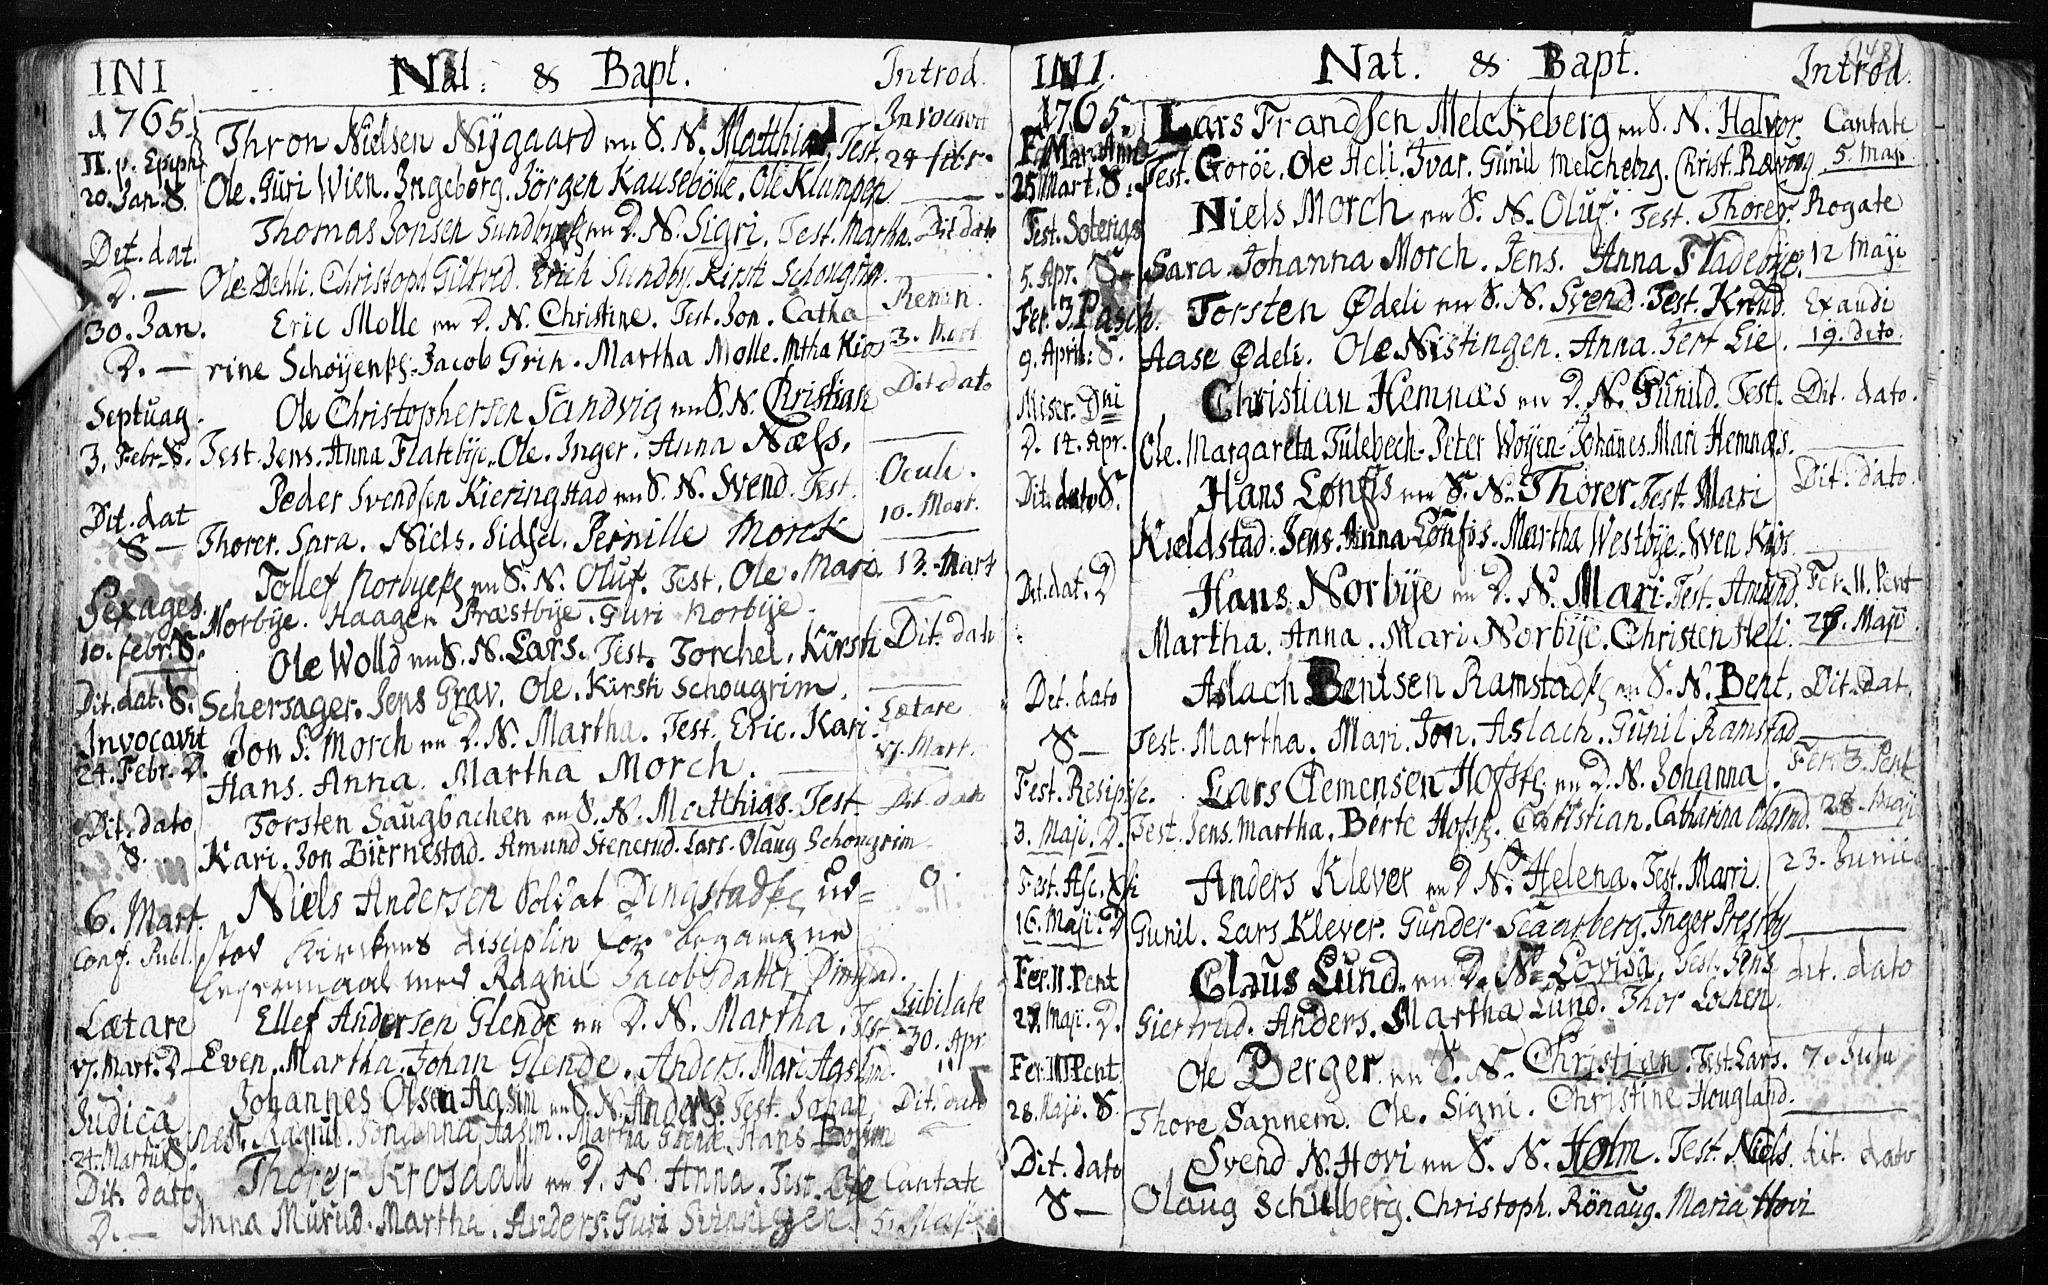 INI Nat: & Bapt. Introd.
1765. Thron Nielsen Nÿgaard en S. N. Matthias, Test. Invocavit
II. p. Epiph. 24 febr.
20. Jan. S. Ole. Guri Wien. Ingeborg. Jörgen Kausebölle. Ole Klumpen
Thomas Jonsen Sundbye en D. N. Sigri. Test. Martha. Dit dato
Det. dat.
D. — Ole Dehli. Christoph Giltved. Erich Sundby. Kirsti Schougrim.
30. Jan. Eric Molle en D. N. Christine. Test. Jon. Catha Remin.
D. — rine Schoÿen. Jacob Grin. Martha Molle. Mtha Kios 3. Mart.
Septuag. Ole Christophersen Sandvig en S. N. Christian Dit dato
3. Febr. S. Test. Jens. Anna Flatebÿe. Ole. Inger. Anna Næss.
Peder Svendsen Kieringstad en S. N. Svend. Test. Oculi.
Dit. dat 10. Mart.
S — Thorer. Sara. Niels. Sidsel. Pernille Morck
Tollef Norbye en S. N. Oluf. Test. Ole. Mari. 13. Mart
Sexages. Norbÿe. Haagen Præstbÿe. Guri Norbÿe.
10. febr. S. Ole Wolld en S. N. Lars. Test. Torchel. Kirsti Dit. dato
Dit. dat. S. Schersager. Jens Grav. Ole. Kirsti Schougrim.
Invocavit Jon S. Morch en D. N. Martha. Test. Eric. Kari. Lætare
24. Febr. D. Hans. Anna. Martha Morch. 17. Mart.
Torsten Saugbachen en S. N. Matthias. Test. Dit. dato
Dit. dato
S. Kari. Jon Biernestad. Amund Stenerud. Lars. Olaug Schougrim
6. Mart. Niels Andersen Soldat Dingstad ud= 0.
Conf. Publ. stod Kirckens disciplin for begangne
leyermaal med Ragnil Jacobsdatter Dingstad.
Lætare Ellef Andersen Glende en D. N. Martha. Test Jubilate
17. Mart. D— Even. Martha. Johan Glende. Anders. Mari Aaslund. 30. Apr
Judica Johannes Olsen Aasim en S. N. Anders. Test. Johan Dit. dato
24. Martii S. Ragnil. Johanna Aasim. Martha Glende. Hans
Dit. dato Thorer Krosdall en D. N. Anna. Test. Ole Cantate
D. — Anna Murud. Martha. Anders. Guri 5. Maji
INI. Nat. & Bapt. Introd. (148)
1765. Lars Frandsen Melckeberg en S. N. Halvor. Cantate
F. Mar. Ann
25 Mart. S. Test. Goröe. Ole Heli. Ivar. Gunil Melcheberg. Christ. Rævoug 5. Maji
Niels Morch en S. N. Oluf. Test. Thorer. Rogate
Fest. Soterias
5. Apr. S. Sara. Johanna Morch. Jens. Anna Fladebÿe. 12 Maji
Fer. 3. Pasch. Torsten Ødeli en S. N. Svend. Test. Knud. Exaudi
9. April. S. Aase Ødeli. Ole Nistingen. Anna. Tert Lie. 19. dito
Miser. Dni Christian Hemnæs en D. N. Gunild. Test. Dit. dato.
D. 14. Apr. Ole. Margareta Tulebech. Peter Woyen. Johanes. Mari Hemnæs.
Dit. dato S. Hans Lonfs en S. N. Thorer. Test. Mari Dit. dato.
Kieldstad. Jens. Anna Lonfos. Martha Westbÿe. Sven Kios
Dit. dat. D Hans Norbÿe en D. N. Mari. Test. Amund. Fer. II. Pent
Martha. Anna. Mari Norbÿe. Christen Heli. 27. Maji.
Dit. dato Aslach Bentsen Ramstad en S. N. Bent. Dit. dat.
S — Test. Martha. Mari. Jon. Aslach. Gunil Ramstad
Fest. Resipisc. Lars Clemensen Hofs en D. N. Johanna. Fer. 3. Pent
3. Maji. D. Test. Jens. Martha. Berte Hofs. Christian. Catharina 28. Maji
Fest. Asc. Xsti Anders Klever en D N. Helena. Test. Marri. 23. Junii
16. Maji. D Gunil. Lars Klever. Gunder Scaarberg. Inger Presby
Fer. II. Pent Claus Lund en D. N. Lovisa. Test. Jens dit. dato
27. Maji. D. Giertrud. Anders. Martha Lund. Thor Lochen.
Fer. III Pent Ole Berger en S. N. Christian. Test. Lars. 7. Julii
28. Maji. S. Thore Sannem. Ole. Signi. Christine Hougland.
Dit. dato Svend N. Hovi en S. N. Holm. Test. Niels dit. dato
S — Olaug Schulberg. Christoph. Rönaug. Maria Hovi